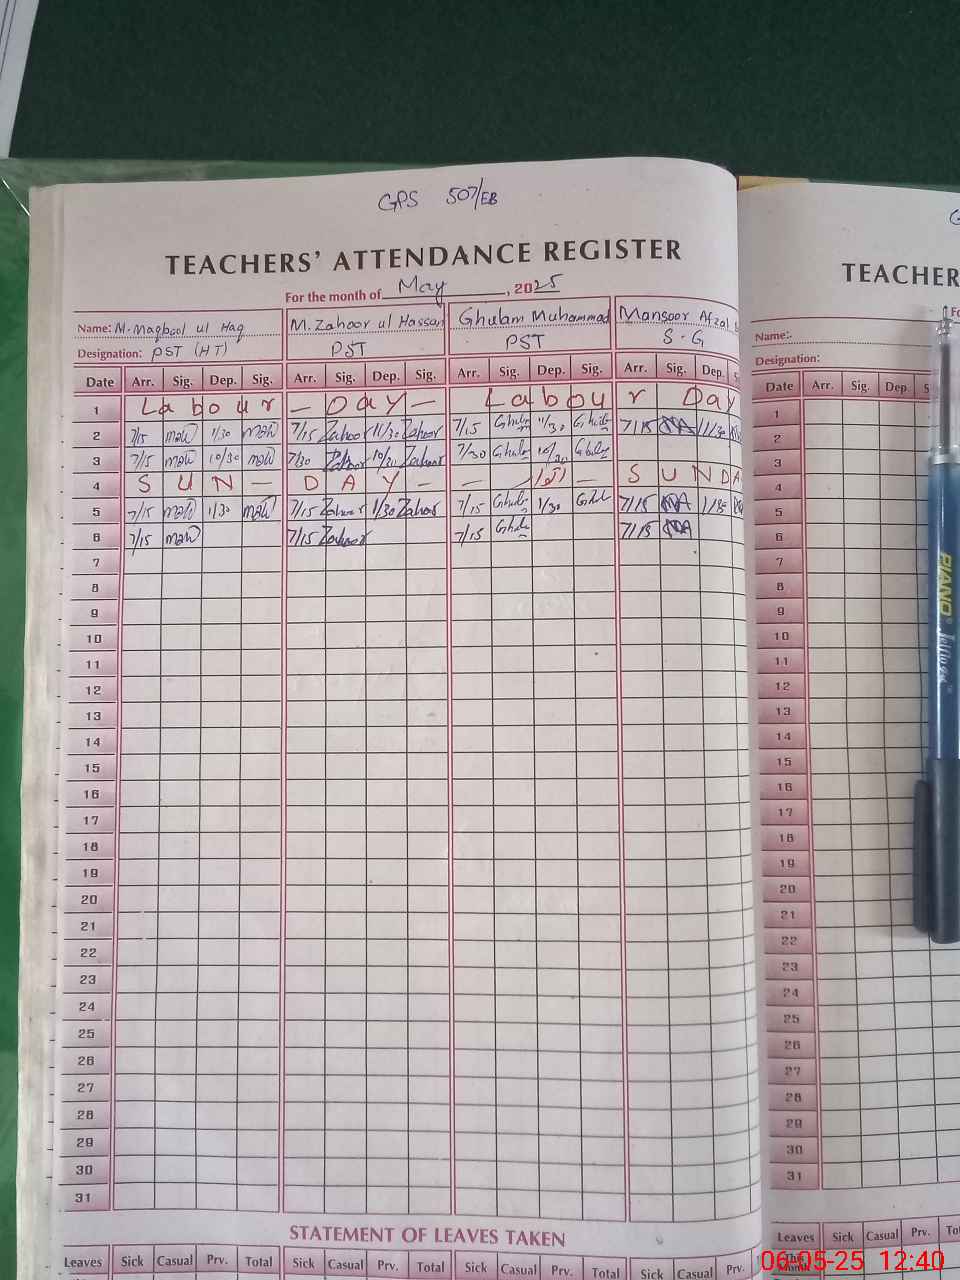 GPS 507/EB
TEACHERS' ATTENDANCE REGISTER
For the month of May, 2025
Name: M. Maqbool ul Haq M. Zahoor ul Hassan Ghulam Muhammad Mansoor Afzal
Designation: PST (HT) PST PST S-G
Date Arr. Sig. Dep. Sig. Arr. Sig. Dep. Sig. Arr. Sig. Dep. Sig. Arr. Sig. Dep. S
1 Labour — Day — Labour Day
2 7/15 1/30 7/15 Zahoor 11/30 Zahoor 7/15 Ghulam 11/30 Ghulam 7/15 11/30
3 7/15 10/30 7/30 Zahoor 10/30 Zahoor 7/30 Ghulam 10/30 Ghulam
4 SUN — DAY — — — SUNDA
5 7/15 1/30 7/15 Zahoor 1/30 Zahoor 7/15 Ghulam 1/30 7/15 1/30
6 7/15 7/15 Zahoor 7/15 Ghulam 7/15
7
8
9
10
11
12
13
14
15
16
17
18
19
20
21
22
23
24
25
26
27
28
29
30
31
STATEMENT OF LEAVES TAKEN
Leaves Sick Casual Prv. Total Sick Casual Prv. Total Sick Casual Prv. Total Sick Casual Prv.
TEACHER
Fo
Name:-
Designation:
Date Arr. Sig. Dep. S
1
2
3
4
5
6
7
8
9
10
11
12
13
14
15
16
17
18
19
20
21
22
23
24
25
26
27
28
29
30
31
Leaves Sick Casual Prv. Tot
This Month
PIANO
06-05-25 12:40